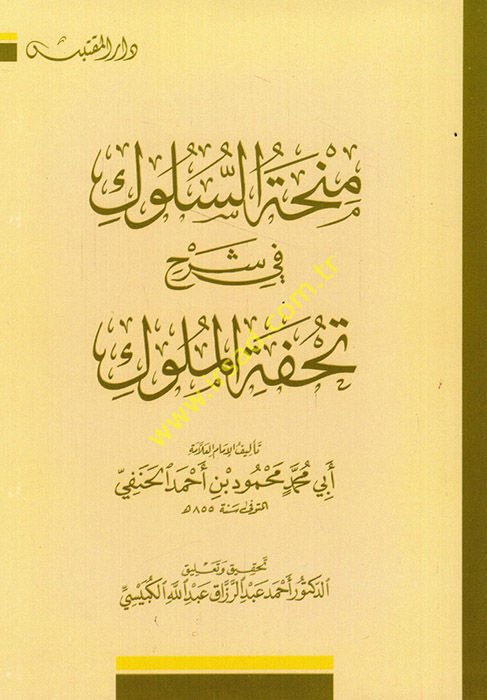 دار المقتبس
مِنْحَةُ السُّلُوكِ
فِي شَرْحِ
تُحْفَةِ المُلُوكِ
www.nsad.com.tr
تأليف الإمام العلامة
أَبِي مُحَمَّدٍ مَحْمُودِ بْنِ أَحْمَدَ الْحَنَفِيِّ
المتوفى سنة ٨٥٥ هـ
تحقيق وتعليق
الدكتور أحمد عبد الرزاق عبد الله الكبيسيّ